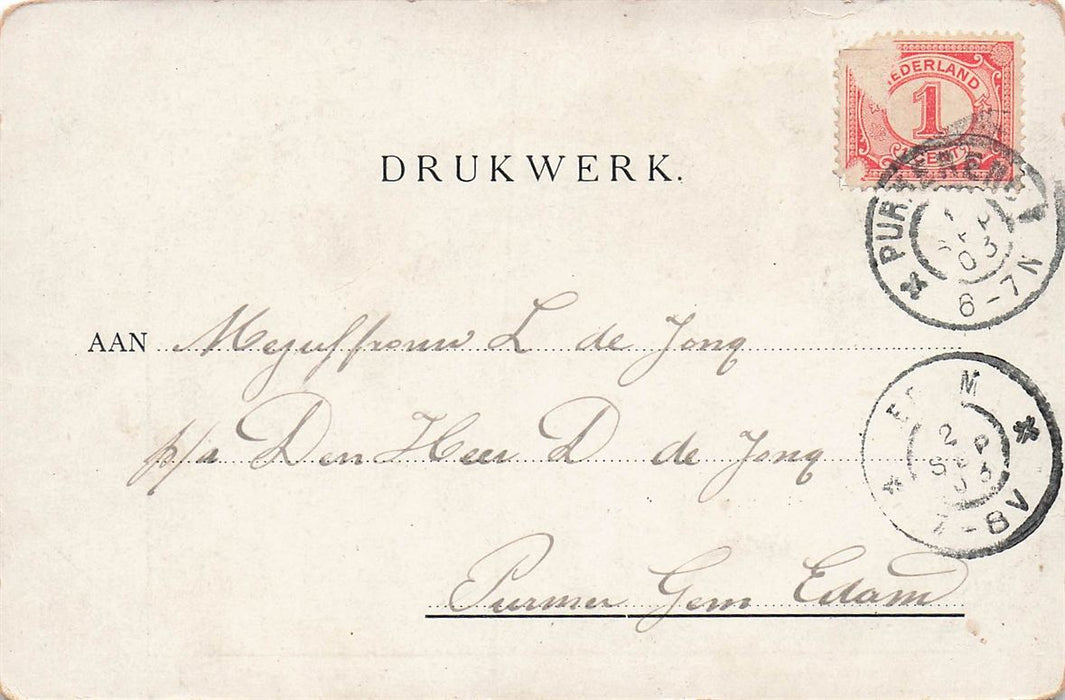 NEDERLAND
1
CENT
DRUKWERK.
PURMEREND
SEP
03
6-7N
AAN Mejuffrouw L de Jong
p/a Den Heer D de Jong
Purmer Gem Edam
2
SEP
03
7-8V